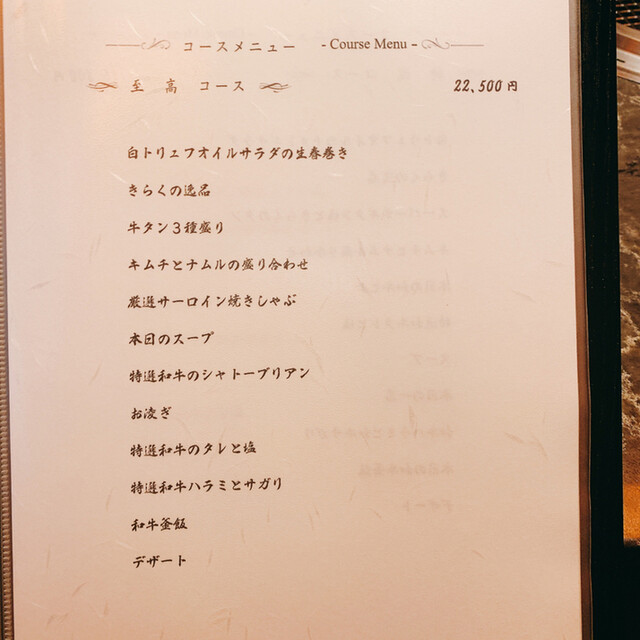 コースメニュー - Course Menu -
至 高 コース 22,500円
白トリュフオイルサラダの生春巻き
きらくの逸品
牛タン3種盛り
キムチとナムルの盛り合わせ
厳選サーロイン焼きしゃぶ
本日のスープ
特選和牛のシャトーブリアン
お凌ぎ
特選和牛のタレと塩
特選和牛ハラミとサガリ
和牛釜飯
デザート